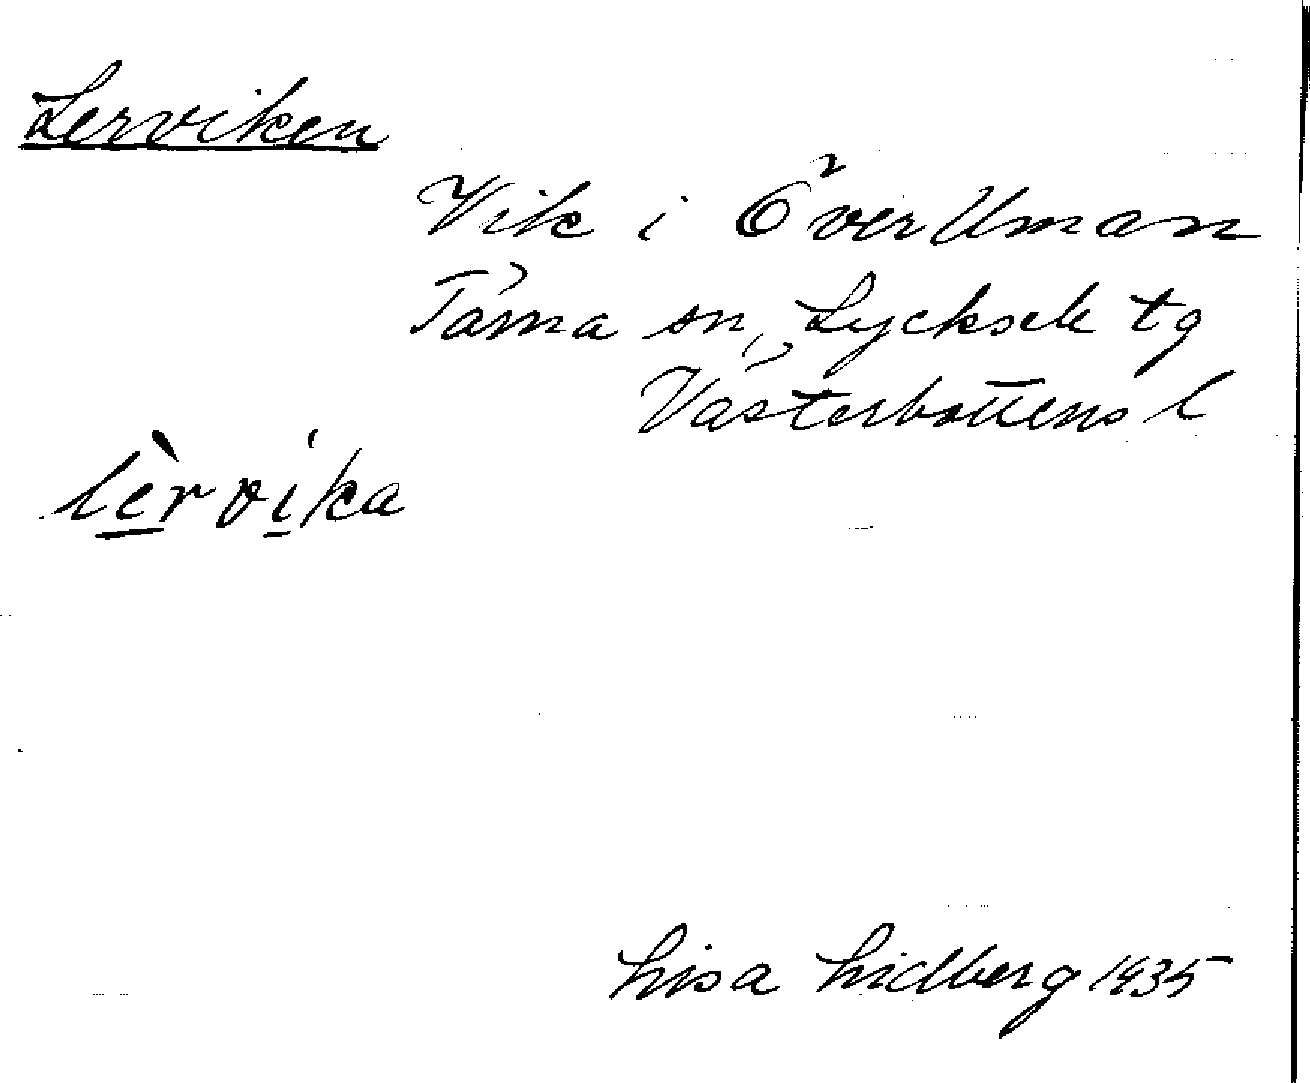 Lerviken
Vik i Överuman
Tärna sn, Lycksele tg
Västerbottens l
lèrvika
Lisa Lidberg 1935